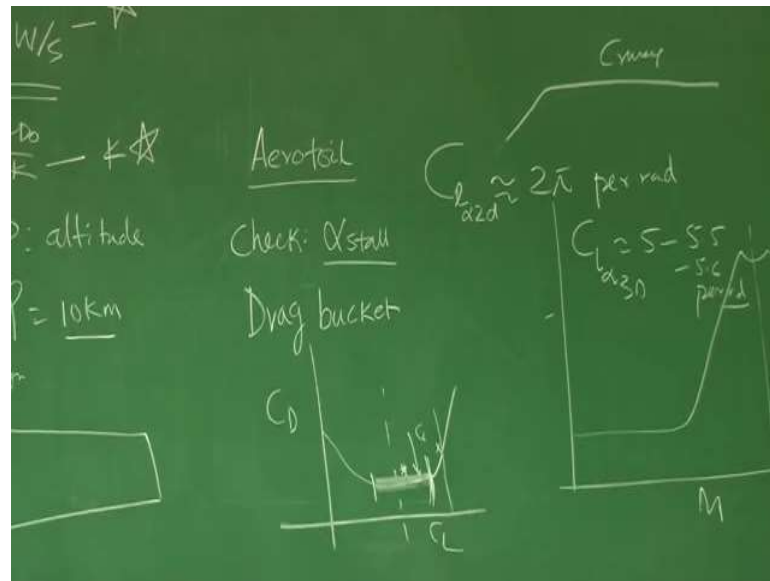 W/S - ☆
Do
K - K☆
: altitude
= 10km
Aerofoil
Check: αstall
Drag bucket
CD
CL
Cruise
Clα2d ≈ 2π per rad
CLα3D ≈ 5 - 5.5
- 5.6
per rad
M